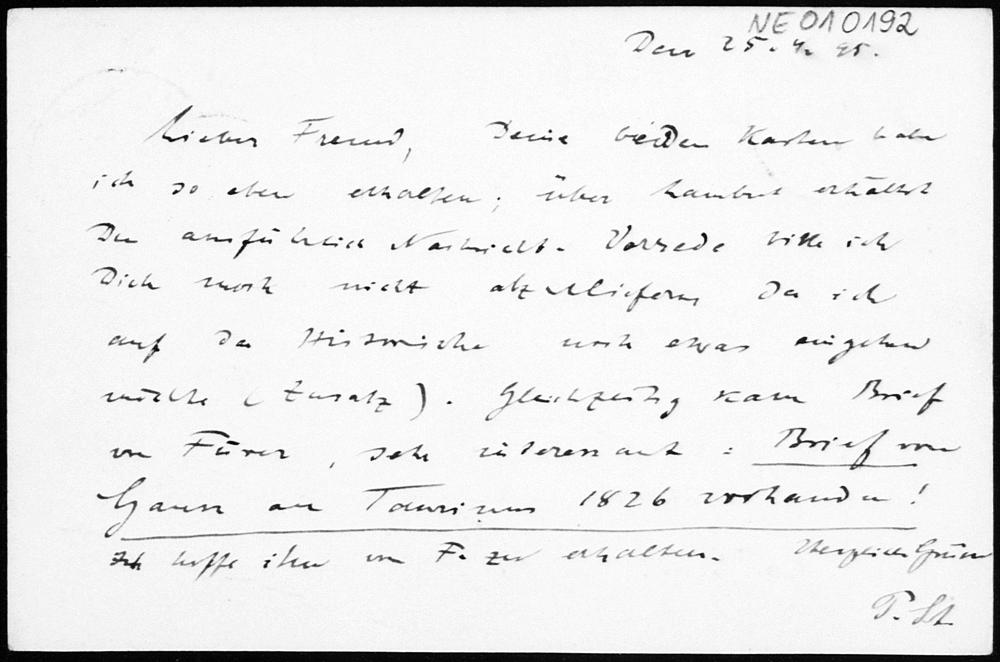 NE 010192
Den 25. 4. 95.
Lieber Freund, Deine beiden Karten habe
ich so eben erhalten; über Lambert erhältst
Du ausführlich Nachricht. Vorrede bitte ich
Dich noch nicht abzuliefern, da ich
auf das Historische noch etwas eingehen
möchte (Zusatz). Gleichzeitig kam Brief
von , sehr interessant: Brief von
Gauss an Taurinus 1826 vorhanden!
Ich hoffe ihn von F. zu erhalten. Herzliche Grüsse
P. St